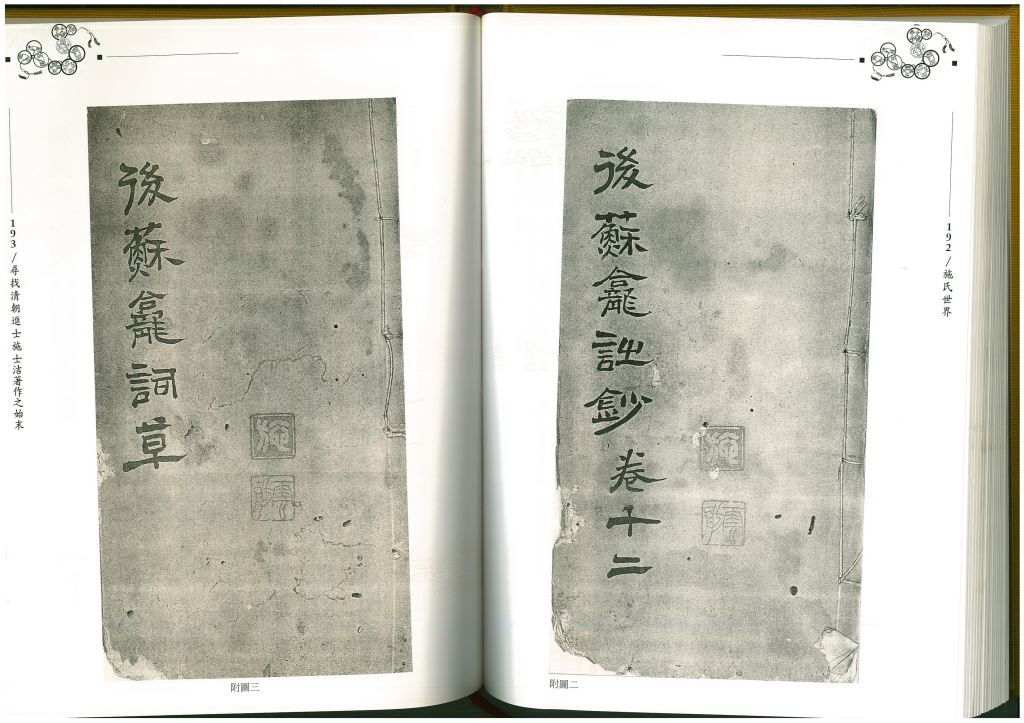 192/施氏世界
後蘇龕詩鈔卷十二
施
附圖二
後蘇龕詞草
施
附圖三
193/尋找清朝進士施士洁著作之始末